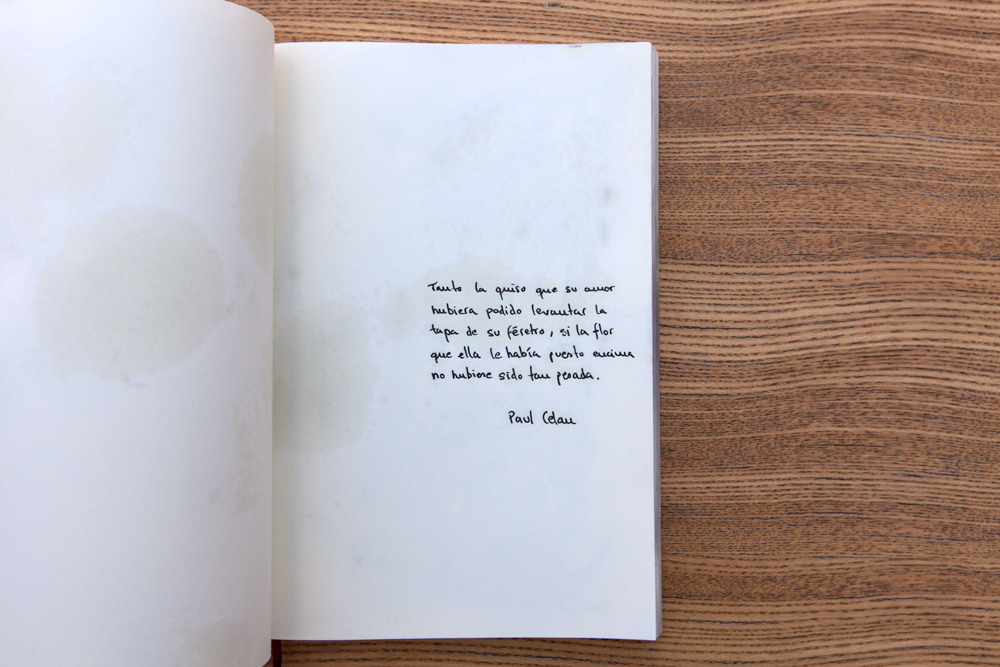 Tanto la quiso que su amor
hubiera podido levantar la
tapa de su féretro, si la flor
que ella le había puesto encima
no hubiese sido tan pesada.
Paul Celan